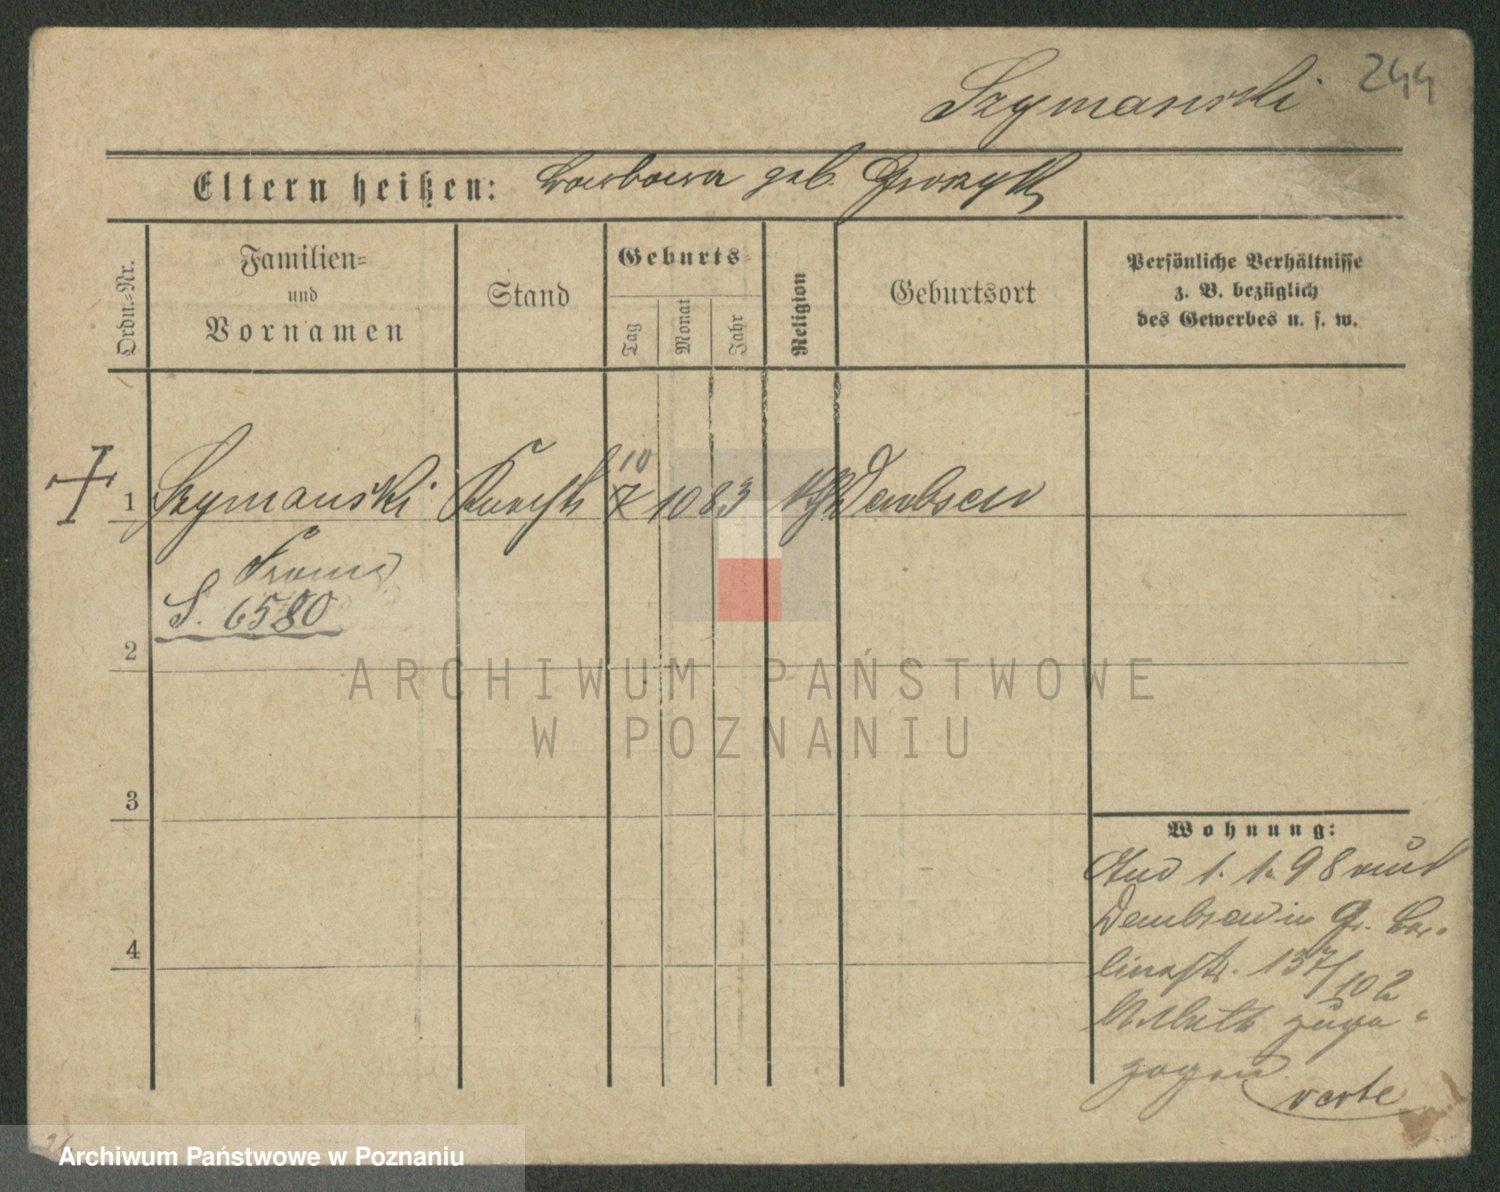 244
Szymanski
Eltern heißen: Barbara geb.
Ordn.=Nr.
Familien=
und
Vornamen
Stand
Geburts=
Tag
Monat
Jahr
Religion
Geburtsort
Persönliche Verhältnisse
z. B. bezüglich
des Gewerbes u. s. w.
10
1 Szymanski Knecht 7 10 83 Dembsen
Franz
S. 6580
2
ARCHIWUM PAŃSTWOWE
W POZNANIU
3
Wohnung:
1. 1. 98 von
Dembsen in Gr. Ber-
linerstr. 137/102
zuge-
zogen
verte
4
Archiwum Państwowe w Poznaniu